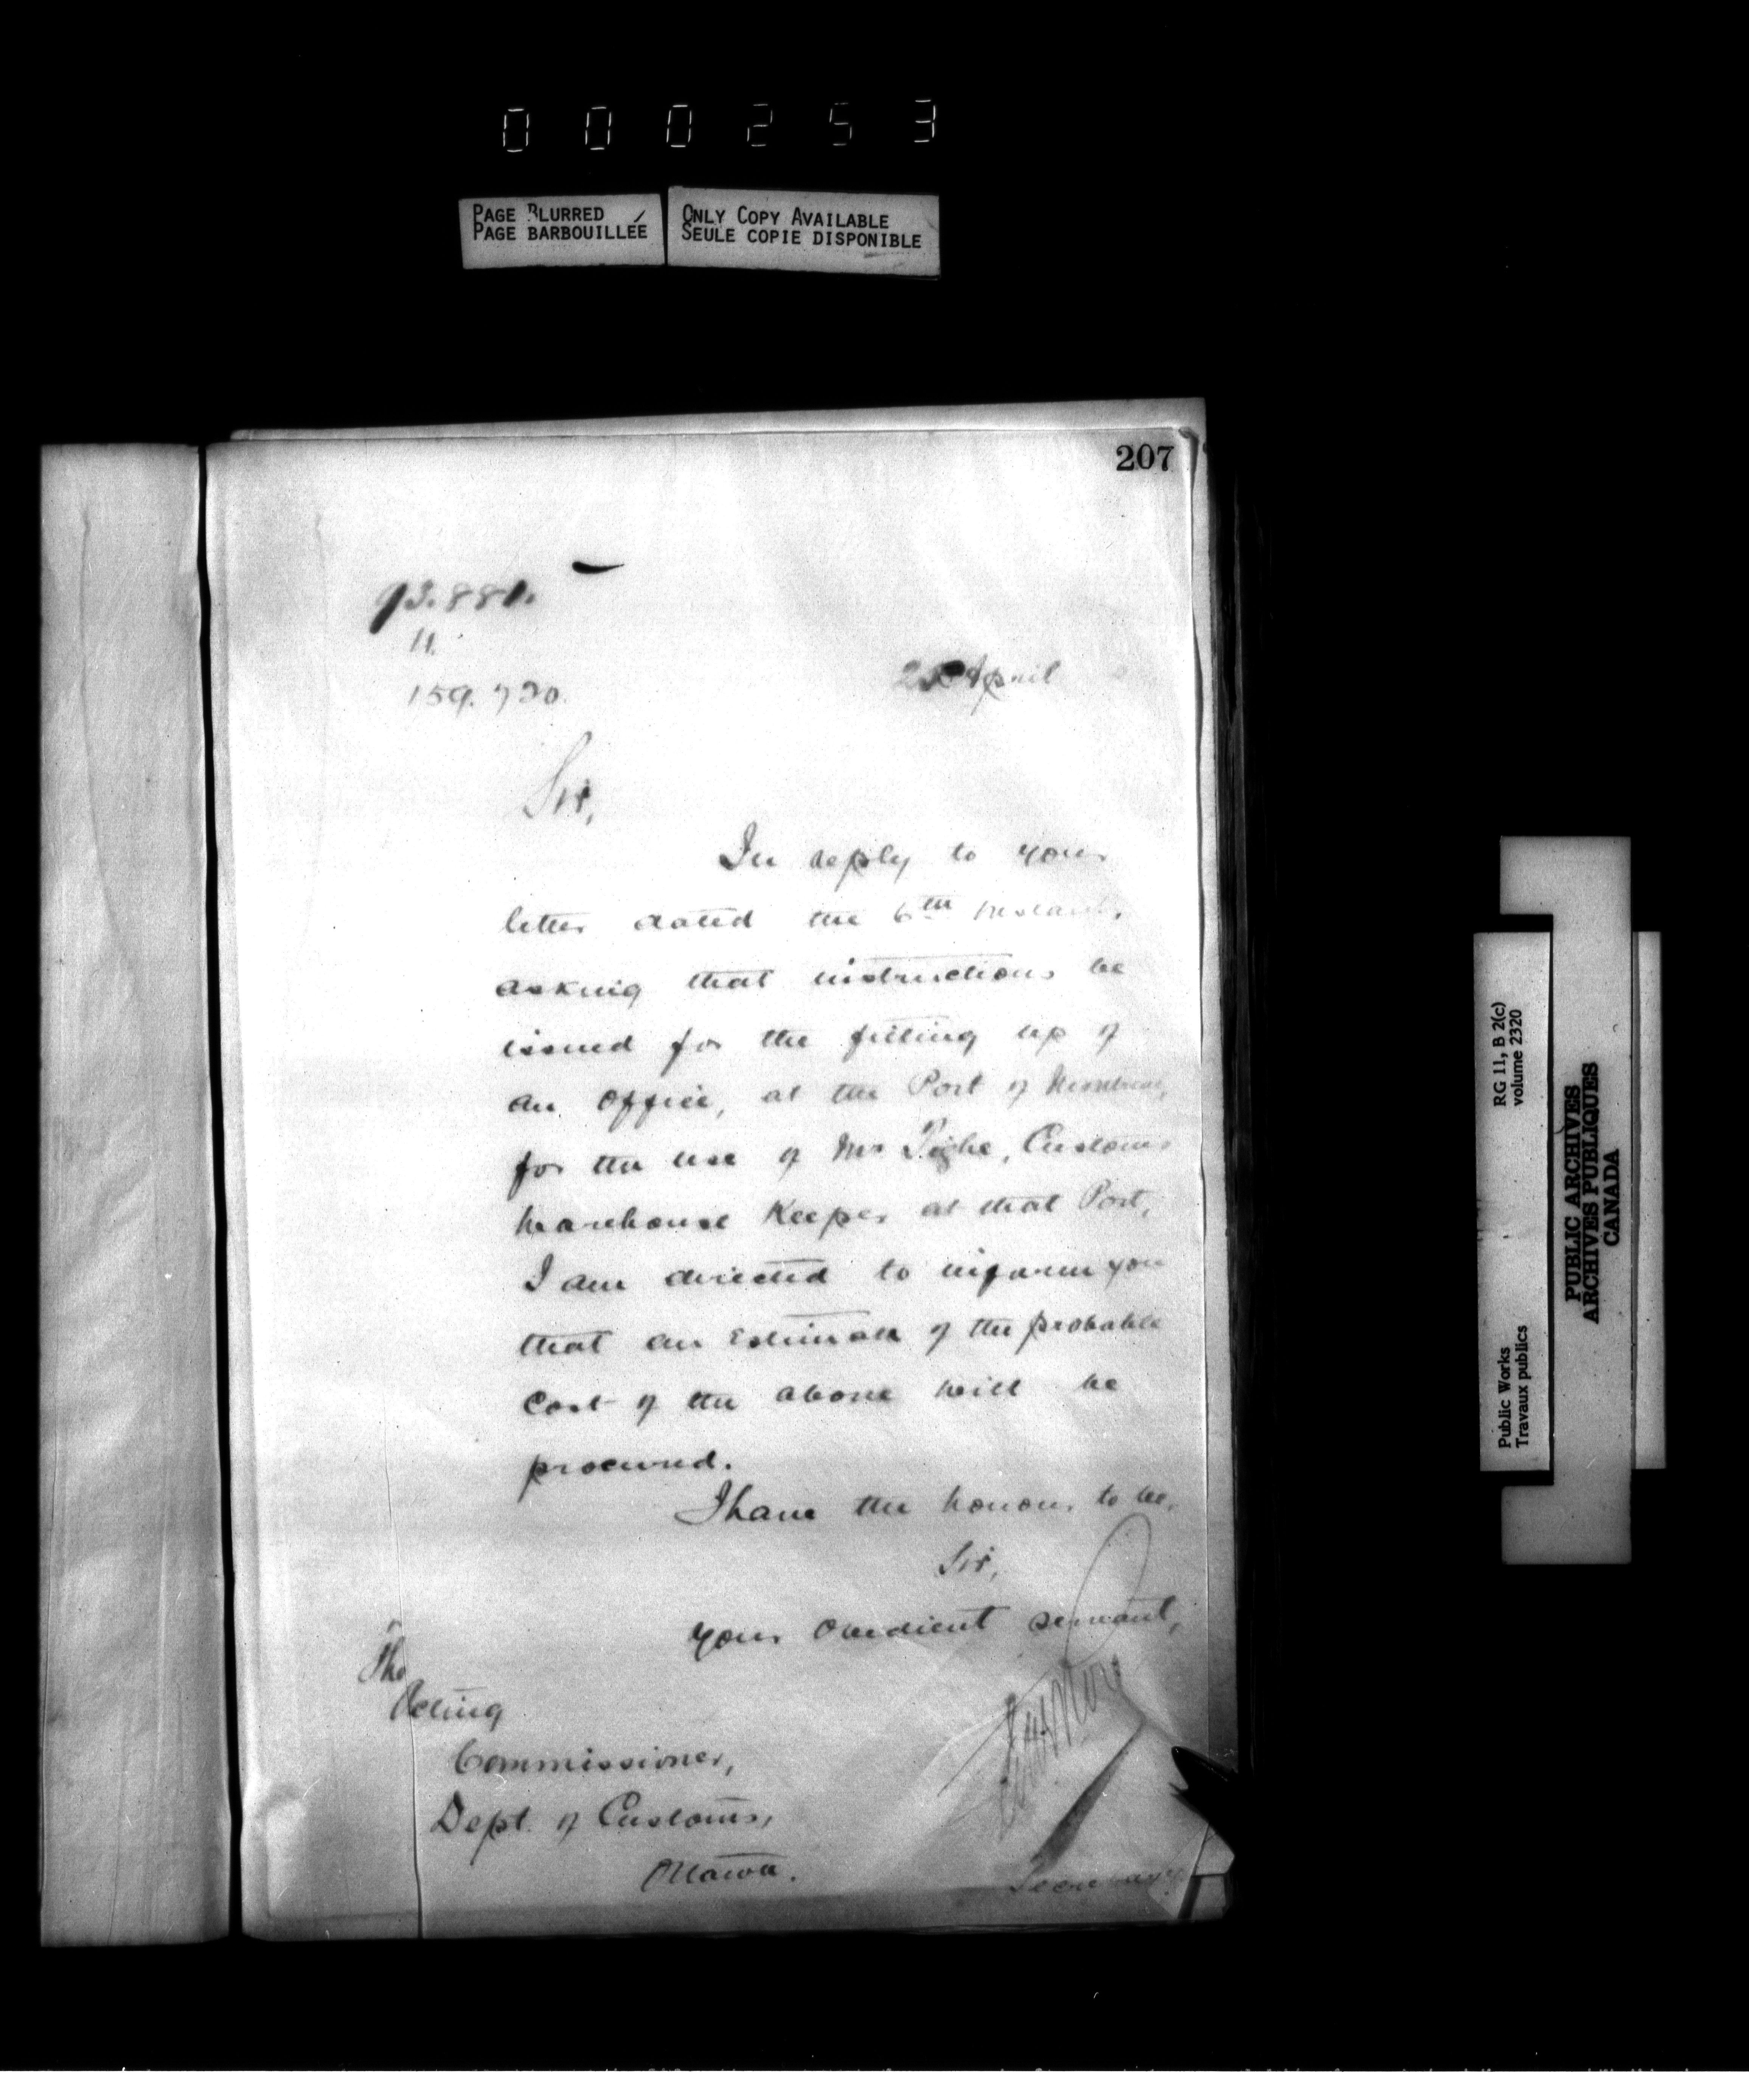 000253
PAGE BLURRED
PAGE BARBOUILLÉE
ONLY COPY AVAILABLE
SEULE COPIE DISPONIBLE
207
93.881.
11.
159.730.
April
Sir,
In reply to your
letter dated the 6th Instant,
asking that instructions be
issued for the fitting up of
an Office, at the Port of Montreal,
for the use of Mr Tighe, Customs
Warehouse Keeper at that Port,
I am directed to inform you
that an Estimate of the probable
Cost of the above will be
procured.
I have the honour to be,
Sir,
Your Obedient servant,
The
Acting
Commissioner,
Dept. of Customs,
Ottawa.
Secretary
RG 11, B 2(c)
volume 2320
Public Works
Travaux publics
PUBLIC ARCHIVES
ARCHIVES PUBLIQUES
CANADA